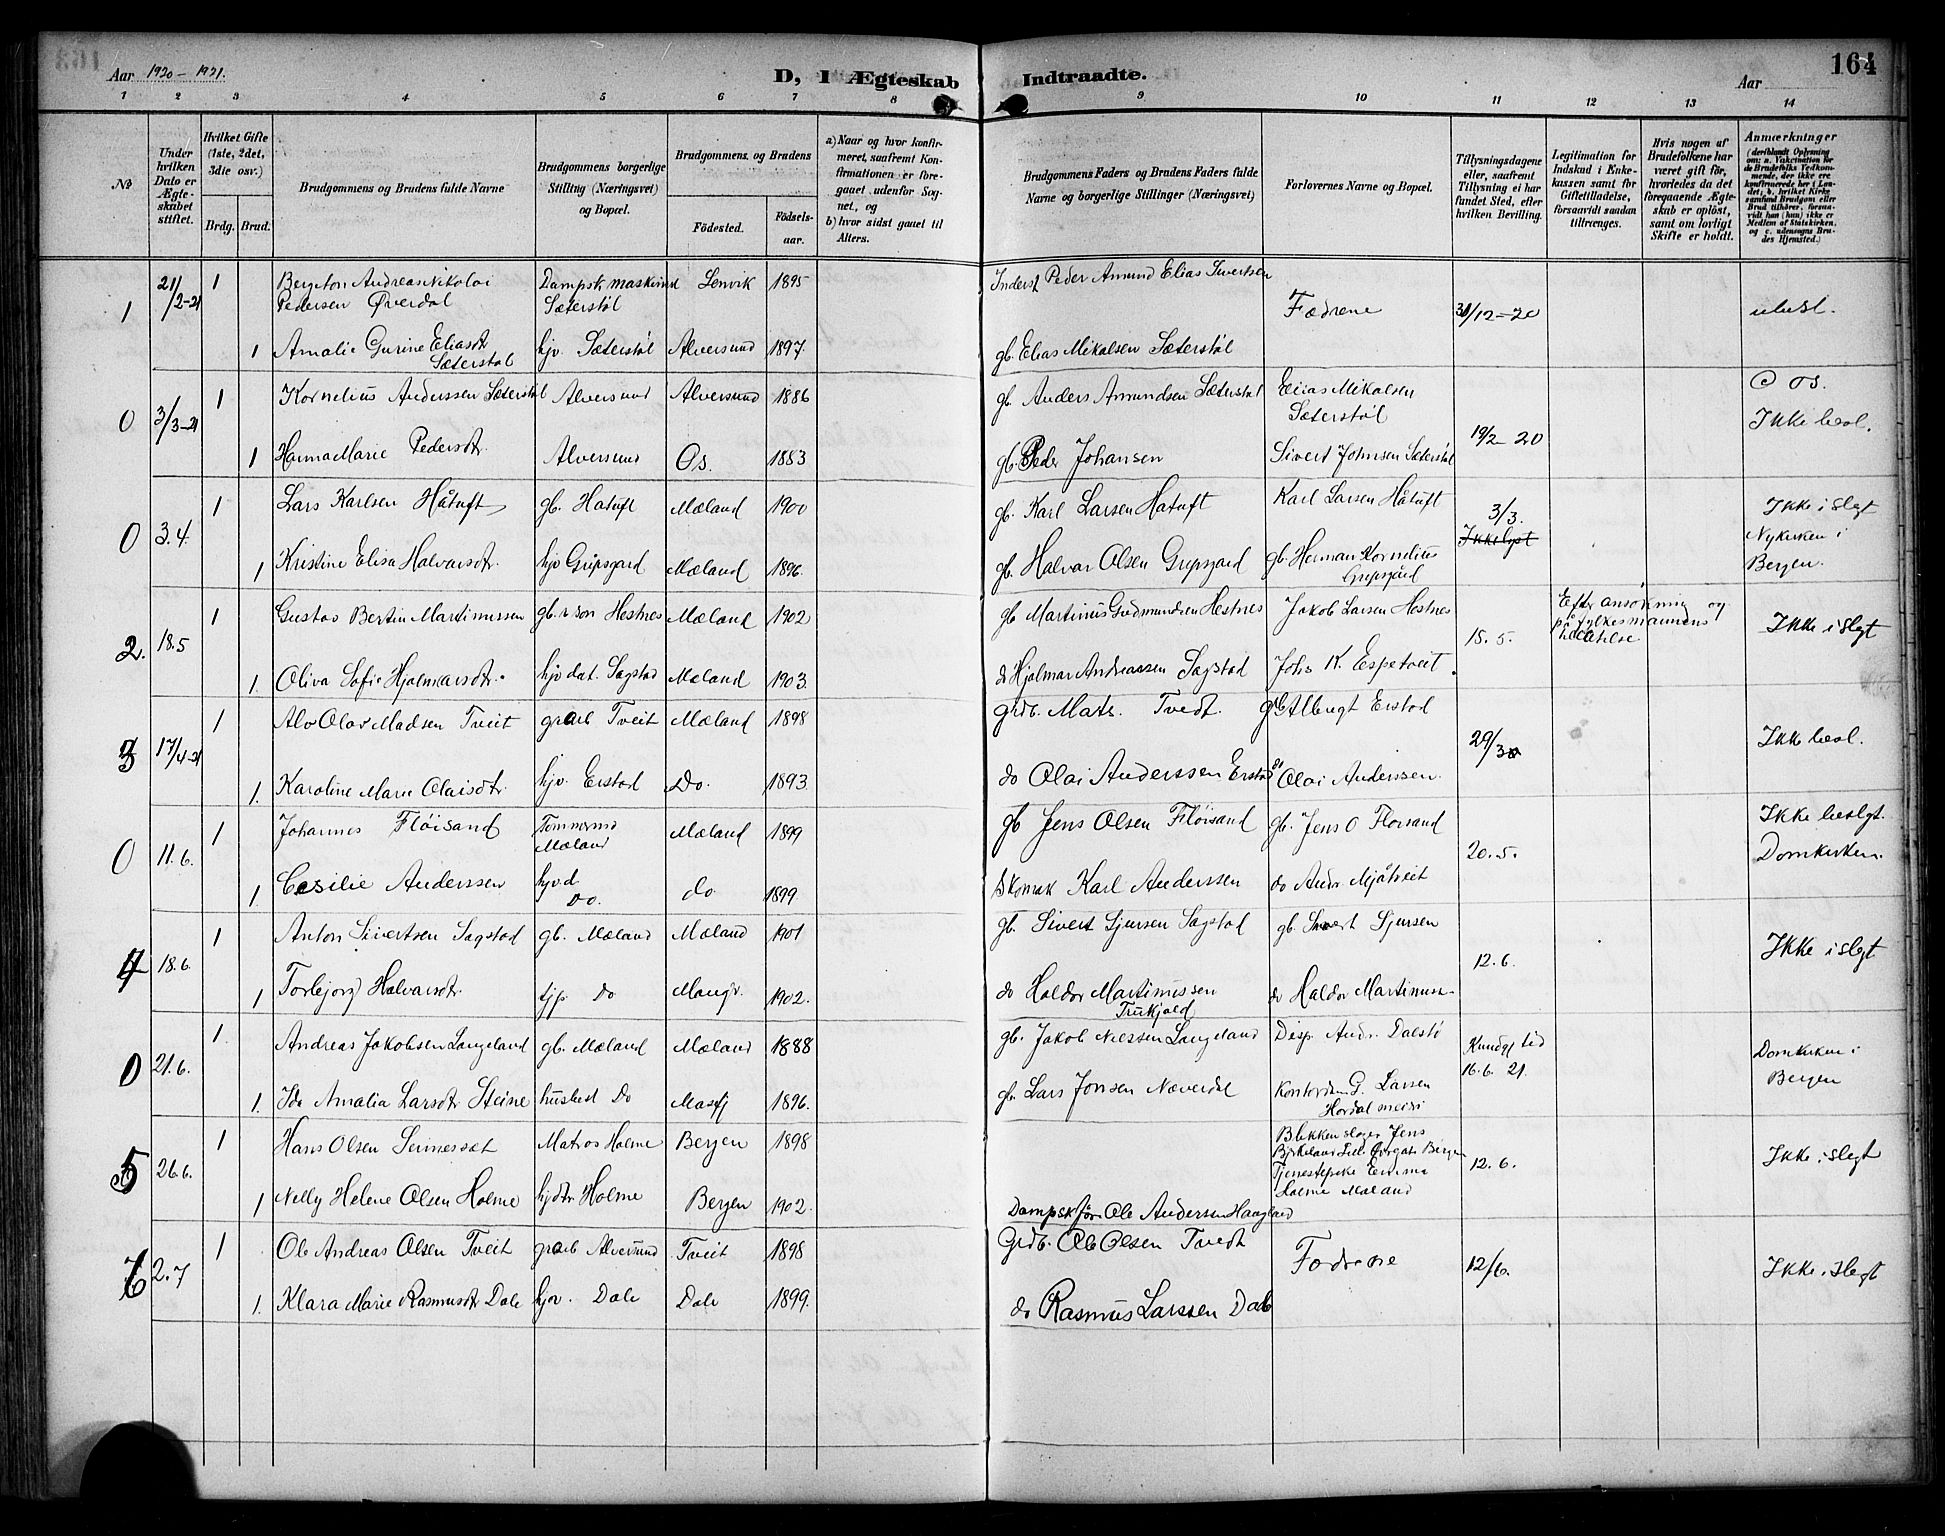 Aar 1920 – 1921.
D, I Ægteskab Indtraadte.
Aar
164
1 2 3 4 5 6 7 8 9 10 11 12 13 14
No
Under hvilken Dato er Ægteskabet stiftet.
Hvilket Gifte (1ste, 2det, 3die osv.)
Brdg. Brud.
Brudgommens og Brudens fulde Navne
Brudgommens borgerlige Stilling (Næringsvei) og Bopæl.
Brudgommens og Brudens
Födested.
Födselsaar.
a) Naar og hvor konfirmeret, saafremt Konfirmationen er foregaaet udenfor Sognet, og
b) hvor sidst gaaet til Alters.
Brudgommens Faders og Brudens Faders fulde Navne og borgerlige Stillinger (Næringsvei)
Forlovernes Navne og Bopæl.
Tillysningsdagene eller, saafremt Tillysning ei har fundet Sted, efter hvilken Bevilling.
Legitimation for Indskud i Enkekassen samt for Giftetilladelse, forsaavidt saadan tiltrænges.
Hvis nogen af Brudefolkene har været gift för, hvorledes da det foregaaende Ægteskab er oplöst, samt om lovligt Skifte er holdt.
Anmærkninger
(deriblandt Oplysning om: a. Vakcination for de Brudefolks Vedkommende, der ikke ere konfirmerede her i Landet; b. hvilket Kirkesamfund Brudgom eller Brud tilhörer, forsaavidt han (hun) ikke er Medlem af Statskirken, og c. udensogns Brudes Hjemsted.)
1 21/2–21 1 Andreas Nikolai Pedersen Øverdal Dampsk. Sæterstøl Lenvik 1895 Inderst Peder Amund Elias Sivertsen Fædrene 31/12–20
1 Amalie Gurine Eliasdtr Sæterstøl hjv. Sæterstøl Alversund 1897. gb. Elias Mikalsen Sæterstøl
0 3/3–21 1 Kornelius Anderssen Sæterstøl Alversund Alversund 1886 gb. Anders Amundsen Sæterstøl Elias Mikalsen Sæterstøl 19/2–20 Os. Ikke besl.
1 Hanna Marie Pedersdtr. Alversund Os. 1883 gb. Peder Johansen Sivert Johnsen Sæterstøl
0 3.4. 1 Lars Karlsen Håtuft gb. Hatuft Mæland 1900 gb. Karl Larsen Hatuft Karl Larsen Håtuft 3/3. Ikke lyst Ikke i slegt Nykirken i Bergen.
1 Kristine Elisa Halvarsdtr. hjv Gripsgard Mæland 1896. gb. Halvar Olsen Gripsgard gb. Herman Kornelius Gripsgård
2. 18.5 1 Gustav Bertin Martinussen gb.s søn Hestnes Mæland 1902 gb Martinus Gudmundsen Hestnes Jakob Larsen Hestnes 15. 5. Efter ansøkning og på fylkesmannens Ikke i slegt
1. Oliva Sofie Hjalmarsdtr. hjv dat. Sagstad Mæland 1903. do Hjalmar Andreassen Sagstad Johs K. Espetveit
3 17/4–21 1 Alv Olav Madsen Tveit grarb Tveit Mæland 1898 Grdb. Mats. Tvedt. Albregt Erstad 29/3 Ikk besl.
1. Karoline Marie Olaisdtr. hjv. Erstad Do. 1893. do Olai Anderssen Erstad Olai Anderssen.
0 11.6. 1 Johannes Fløisand Tømmermd Mæland Mæland 1899 gb Jens Olsen Fløisand gb. Jens O Fløisand 20.5. Ikke beslgt. Domkirken.
1 Cesilie Anderssen hjv.d Do. do 1899. Skomak Karl Anderssen do Andr. Mjåtveit
4 18.6. 1 Anton Sivertsen Sagstad gb. Mæland Mæland 1901 gb. Sivert Sjursen Sagstad gb. Sivert Sjursen 12.6. Ikke i slegt
1 Torbjørg Halvarsdtr. tjp do Mangr. 1902. do Haldor Martinussen do Haldor Martinuss.
0 21.6. 1. Andreas Jakobsen Langeland gb. Mæland Mæland 1888 gb. Jakob Nilssen Langeland Disp. Andr. Dalstø 16.6. 21. Domkirken i Bergen
1. Ida Amalia Larsdtr Steine husbest Do Masfj 1896. gb. Lars Jonsen Næverdal G. Larsen
5 26.6. 1 Hans Olsen Matros Holme Bergen 1898 Blikkenslager Jens Bergen Tjenestepike Emma Holme Mæland 12.6. Ikke i slegt
1 Nelly Helene Olsen Holme hjdtr Holme Bergen 1902. Dampsk.før. Ole Andersen Haagland
6 2.7 1 Ole Andreas Olsen Tveit grarb Alversund Tveit 1898 Grdb. Ole Olsen Tvedt Fædrene 12/6. Ikke i slegt
1. Klara Marie Rasmusdtr Dale hjv. Dale Dale 1899. do Rasmus Larssen Dale